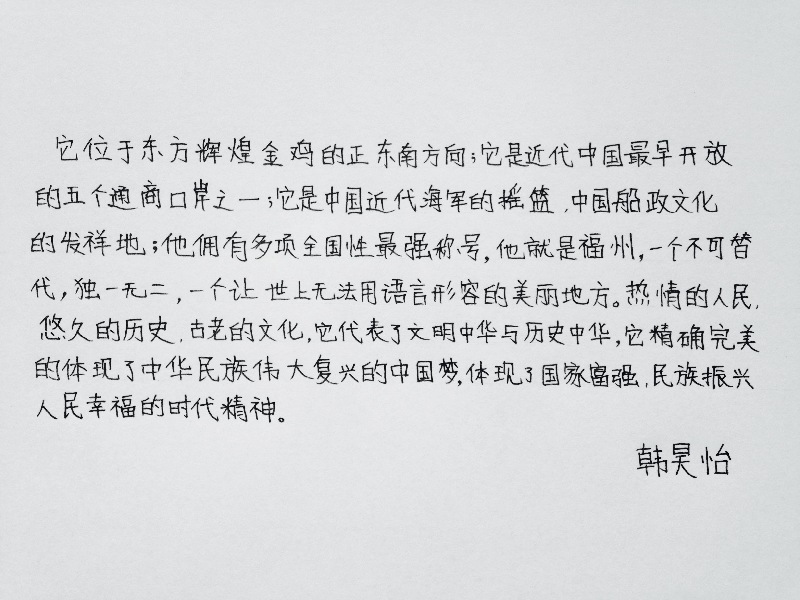 它位于东方辉煌金鸡的正东南方向;它是近代中国最早开放
的五个通商口岸之一;它是中国近代海军的摇篮,中国船政文化
的发祥地;他佣有多项全国性最强称号,他就是福州,一个不可替
代,独一无二,一个让世上无法用语言形容的美丽地方。热情的人民,
悠久的历史,古老的文化,它代表了文明中华与历史中华,它精确完美
的体现了中华民族伟大复兴的中国梦,体现了国家富强,民族振兴
人民幸福的时代精神。
韩昊怡